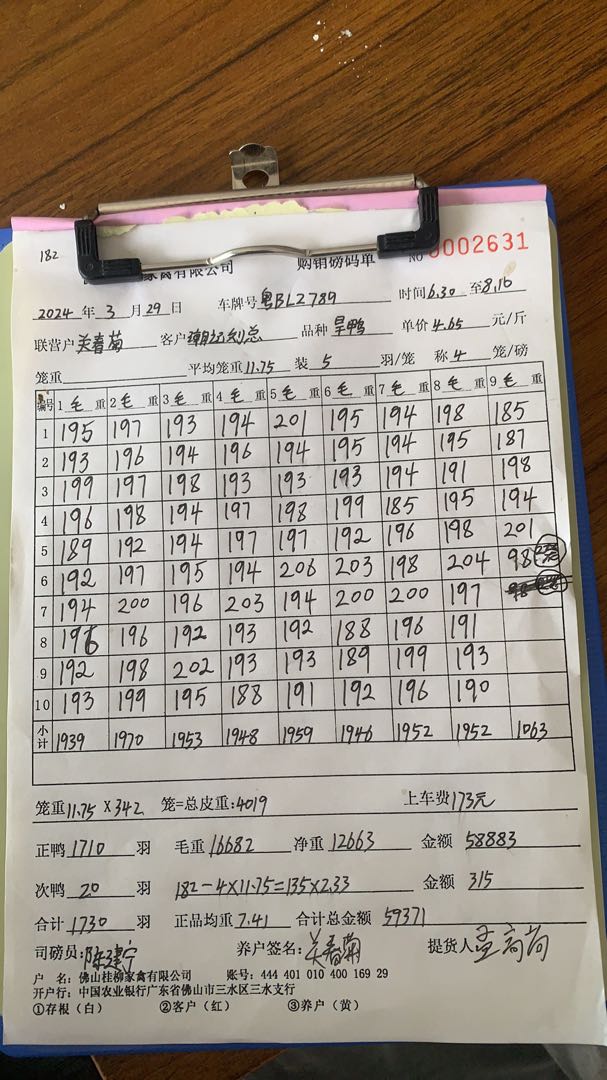 182
家禽有限公司 购销磅码单 NO 0002631
2024 年 3 月 29 日 车牌号 粤BLZ789 时间 6.30 至 8.10
联营户 关春菊 客户 品种 旱鸭 单价 4.65 元/斤
笼重 平均笼重 11.75 装 5 羽/笼 称 4 笼/磅
编号 1 毛 重 2 毛 重 3 毛 重 4 毛 重 5 毛 重 6 毛 重 7 毛 重 8 毛 重 9 毛 重
1 195 197 193 194 201 195 194 198 185
2 193 196 194 196 194 195 194 195 187
3 199 197 198 193 193 193 194 191 198
4 196 198 194 197 198 199 185 195 194
5 189 192 194 197 197 192 196 198 201
6 192 197 195 194 206 203 198 204 98
7 194 200 196 203 194 200 200 197
8 196 196 192 193 192 188 196 191
9 192 198 202 193 193 189 199 193
10 193 199 195 188 191 192 196 190
小计 1939 1970 1953 1948 1959 1946 1952 1952 1063
笼重 11.75 X 342 笼=总皮重: 4019 上车费 173元
正鸭 1710 羽 毛重 16682 净重 12663 金额 58883
次鸭 20 羽 182-4×11.75=135×2.33 金额 315
合计 1730 羽 正品均重 7.41 合计总金额 59371
司磅员: 陈建宁 养户签名: 关春菊 提货人
户 名: 佛山桂柳家禽有限公司 账号: 444 401 010 400 169 29
开户行: 中国农业银行广东省佛山市三水区三水支行
①存根（白） ②客户（红） ③养户（黄）